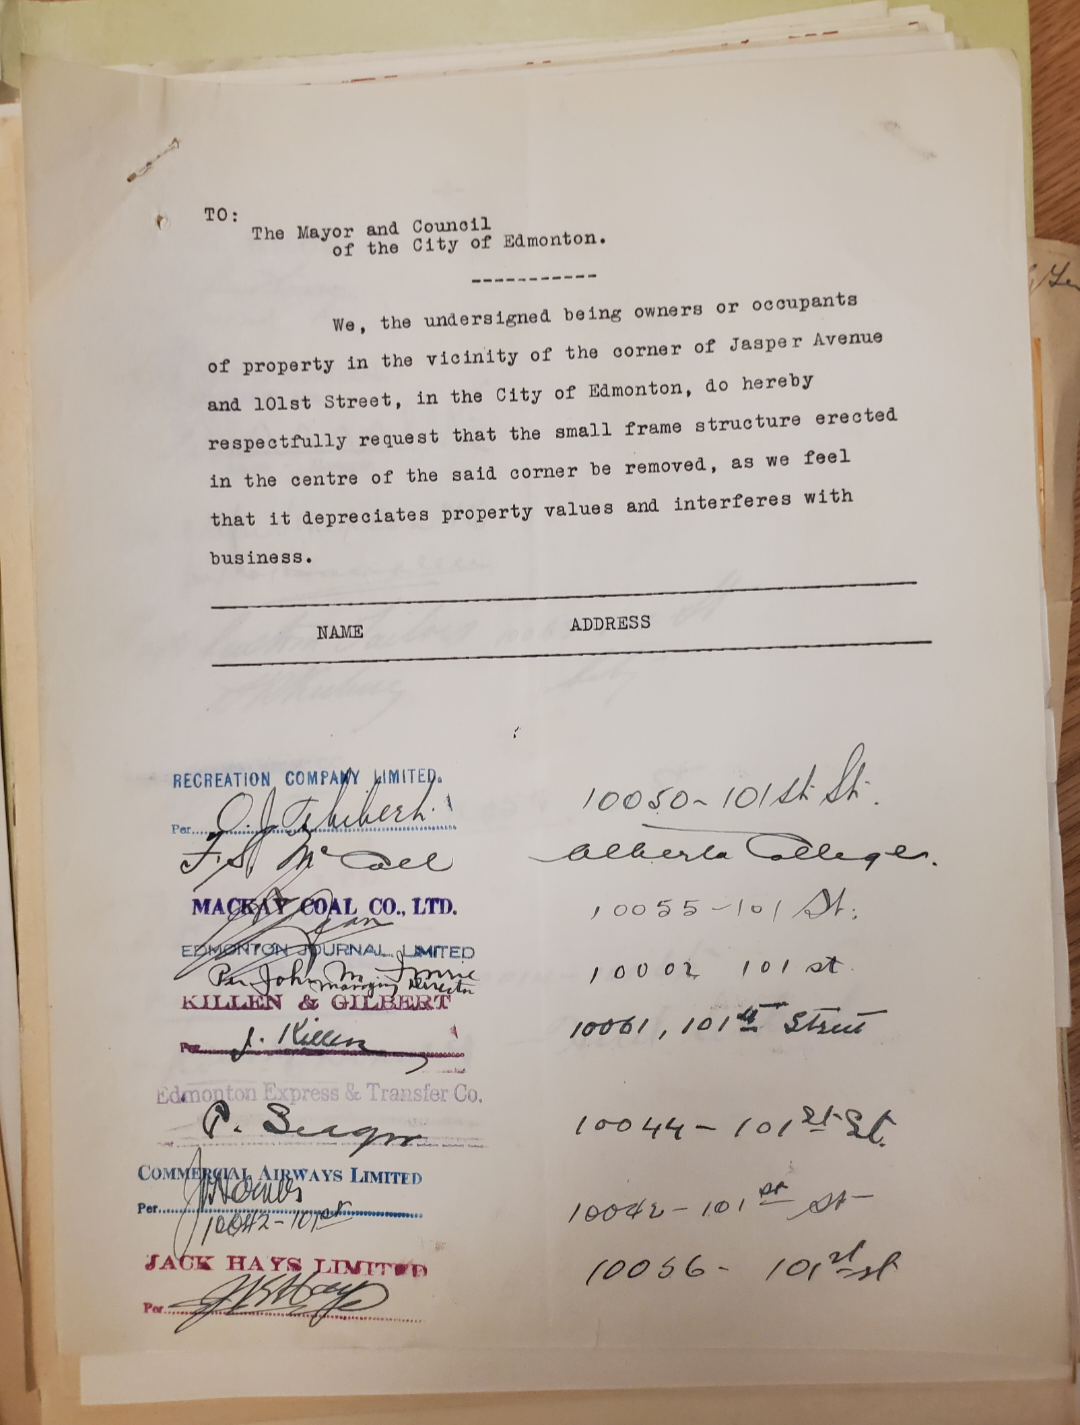 TO:
The Mayor and Council
of the City of Edmonton.
-----------
We, the undersigned being owners or occupants
of property in the vicinity of the corner of Jasper Avenue
and 101st Street, in the City of Edmonton, do hereby
respectfully request that the small frame structure erected
in the centre of the said corner be removed, as we feel
that it depreciates property values and interferes with
business.
NAME ADDRESS
RECREATION COMPANY LIMITED.
Per O. J. 10050-101st St.
F. S. McCall Alberta College.
MACKAY COAL CO., LTD. 10055-101 St.
EDMONTON JOURNAL LIMITED
Per John M. Imrie 10002 101 st
Managing Director
KILLEN & GILBERT
Per J. Killen 10061, 101st Street
Edmonton Express & Transfer Co.
P. 10044-101st St.
COMMERCIAL AIRWAYS LIMITED
Per 10042-101st St
10042-101st
JACK HAYS LIMITED 10056- 101st st
Per Hays